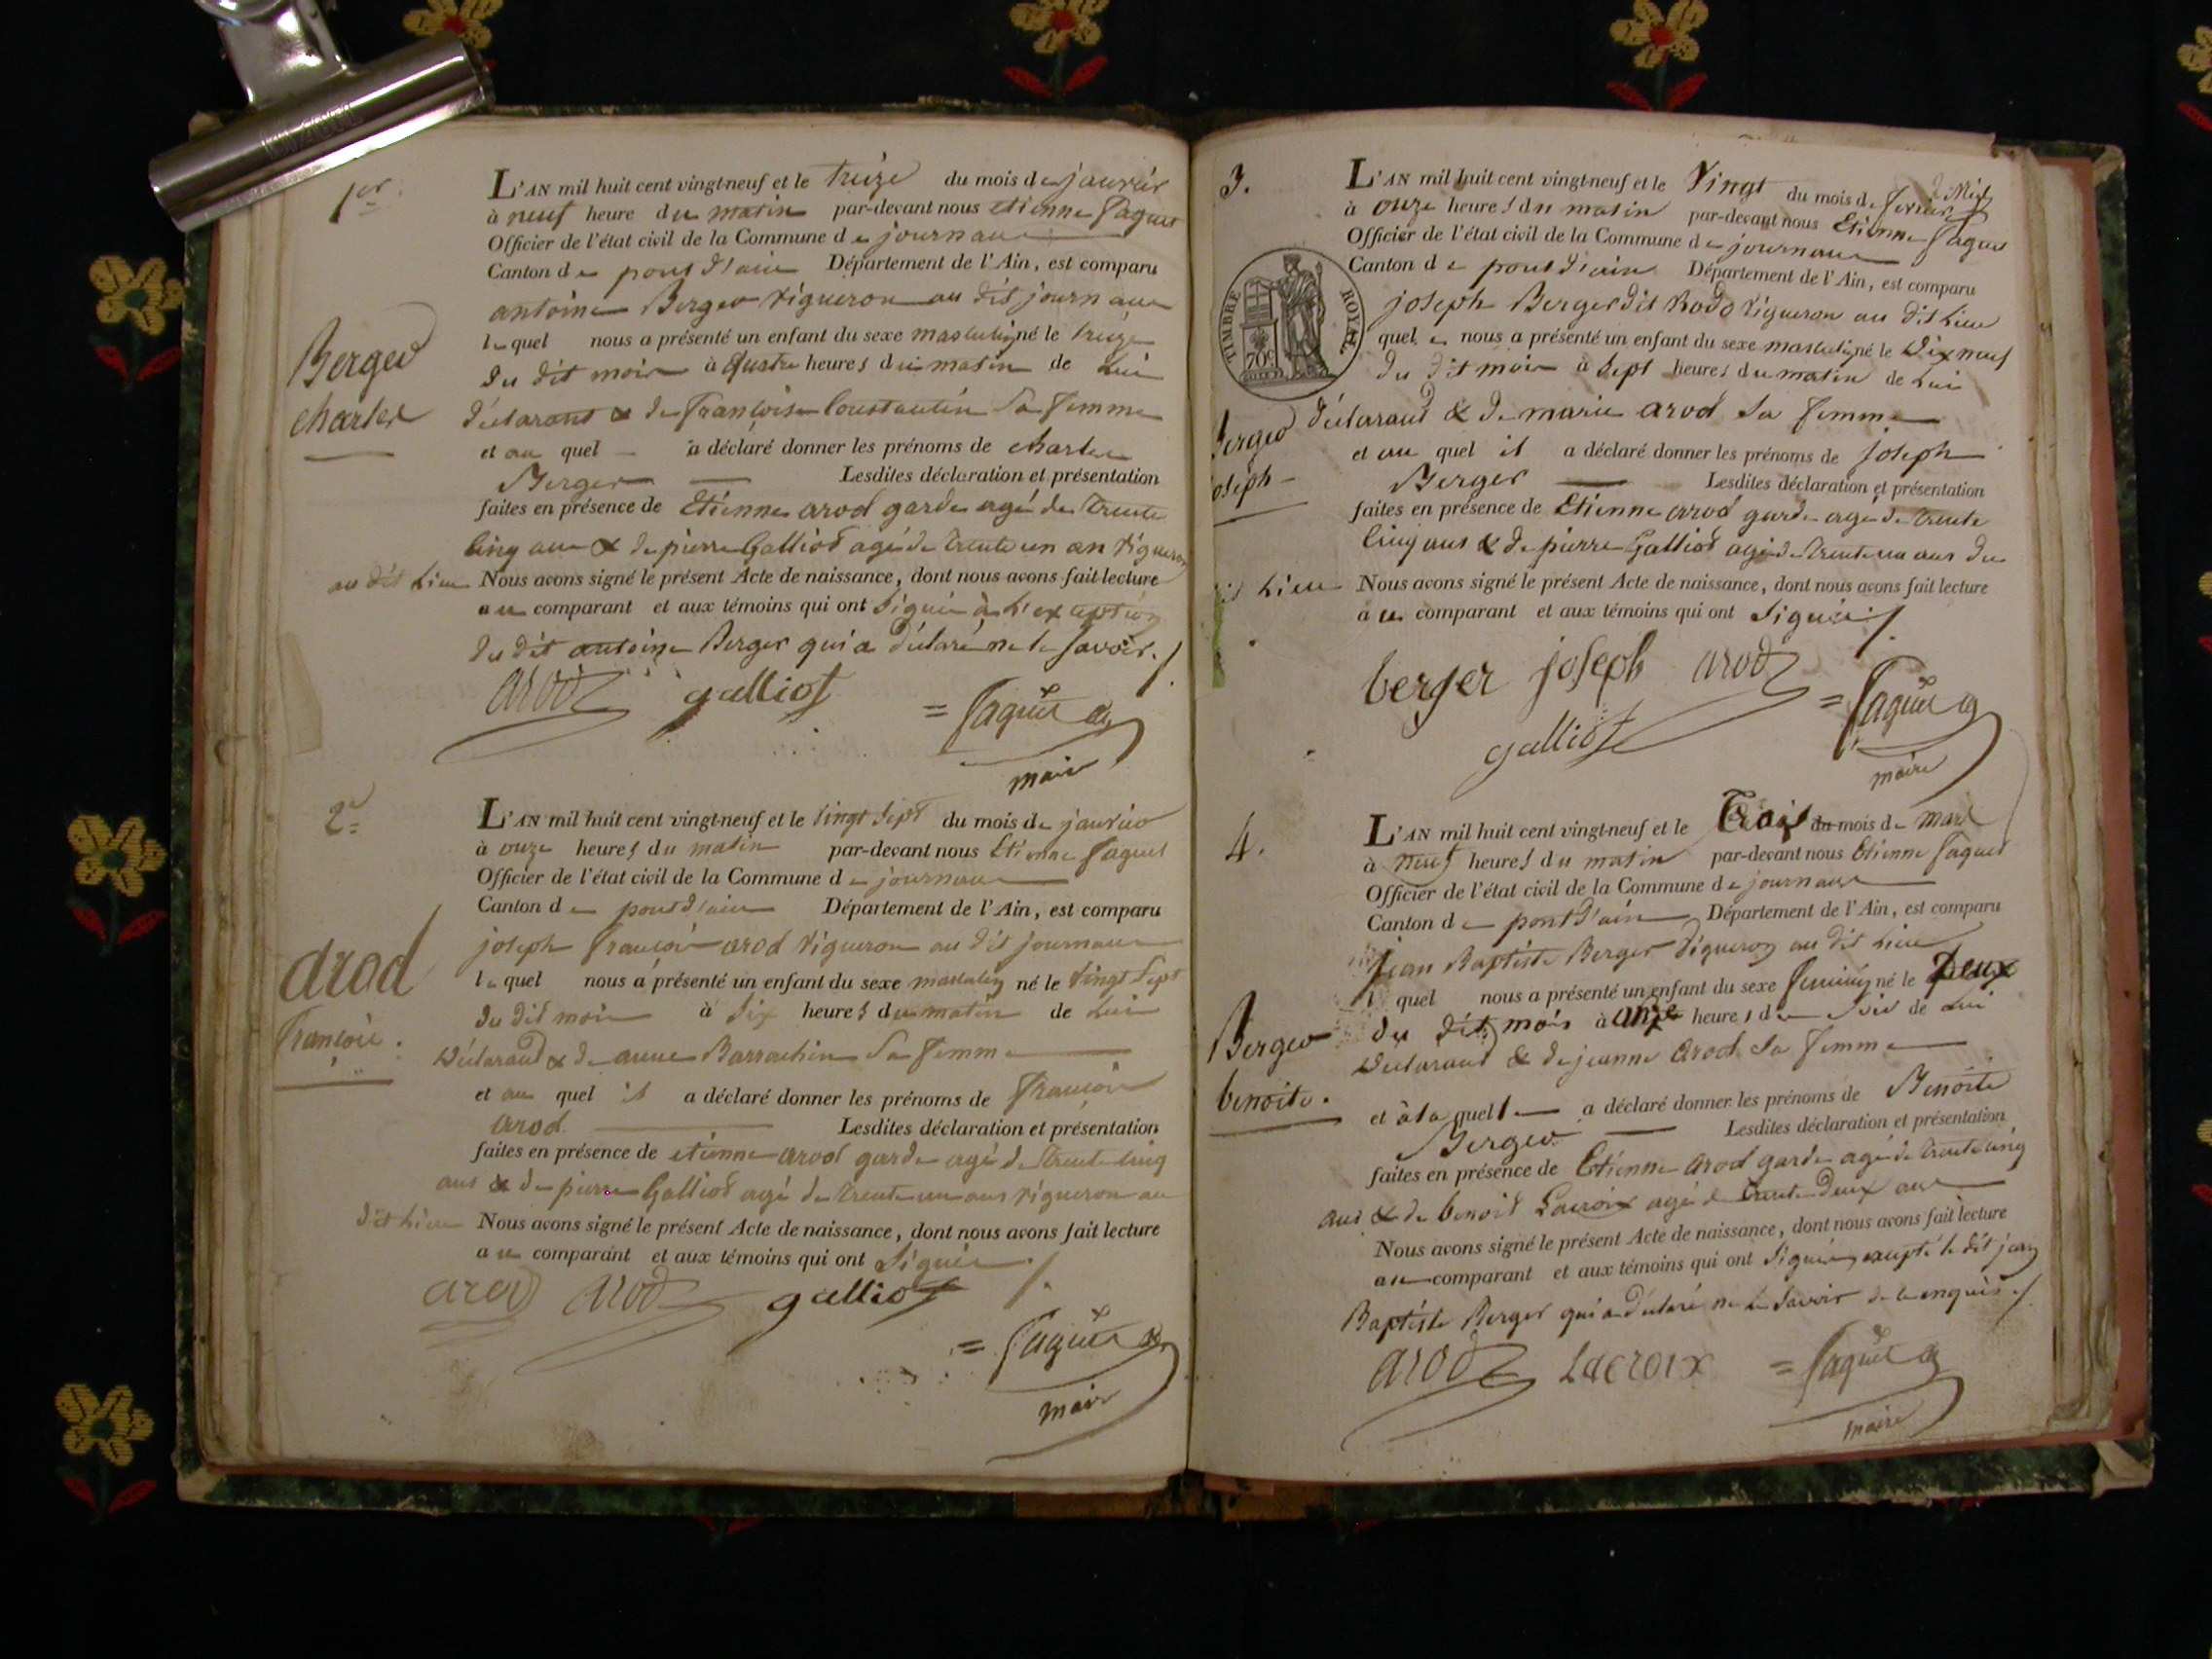 1er
L'AN mil huit cent vingt-neuf et le treize du mois de janvier
à neuf heure du matin par-devant nous etienne faguet
Officier de l'état civil de la Commune de journans
Canton de pont d'ain Département de l'Ain, est comparu
antoine Berger vigneron au dit journans
lequel nous a présenté un enfant du sexe masculin né le treize
du dit mois à quatre heures du matin de lui
Berger
charles
déclarant & de françoise Constantin sa femme
et au quel a déclaré donner les prénoms de charles
Berger Lesdites déclaration et présentation
faites en présence de Etienne arod garde agé de trente
cinq ans & de pierre Galliod agé de trente un an vigneron
au dit lieu Nous avons signé le présent Acte de naissance, dont nous avons fait lecture
au comparant et aux témoins qui ont signé à l'exception
du dit antoine Berger qui a déclaré ne le savoir./.
arod galliot = faguet
maire
2e
L'AN mil huit cent vingt-neuf et le vingt sept du mois de janvier
à onze heures du matin par-devant nous Etienne faguet
Officier de l'état civil de la Commune de journans
Canton de pont d'ain Département de l'Ain, est comparu
joseph françois arod vigneron au dit journans
lequel nous a présenté un enfant du sexe masculin né le vingt sept
du dit mois à six heures du matin de lui
arod
françois.
Déclarant & de anne Barrachin sa femme
et au quel il a déclaré donner les prénoms de françois
arod Lesdites déclaration et présentation
faites en présence de etienne arod garde agé de trente cinq
ans & de pierre Galliod agé de trente un ans vigneron au
dit lieu Nous avons signé le présent Acte de naissance, dont nous avons fait lecture
au comparant et aux témoins qui ont signé ./.
arod arod galliot
= faguet
maire
3.
L'AN mil huit cent vingt-neuf et le Vingt du mois de fevrier
à onze heures du matin par-devant nous Etienne faguet
Officier de l'état civil de la Commune de journans
Canton de pont d'ain Département de l'Ain, est comparu
TIMBRE ROYAL
70c
joseph Berger dit vigneron au dit lieu
quel nous a présenté un enfant du sexe masculin né le Dix neuf
du dit mois à sept heures du matin de lui
Berger
joseph
déclarant & de marie arod sa femme
et au quel il a déclaré donner les prénoms de joseph
Berger Lesdites déclaration et présentation
faites en présence de Etienne arod garde agé de trente
cinq ans & de pierre Galliod agé de trente un ans du
dit lieu Nous avons signé le présent Acte de naissance, dont nous avons fait lecture
au comparant et aux témoins qui ont signé ./.
berger joseph arod
galliot = faguet
maire
4.
L'AN mil huit cent vingt-neuf et le Trois du mois de mars
à neuf heures du matin par-devant nous Etienne faguet
Officier de l'état civil de la Commune de journans
Canton de pont d'ain Département de l'Ain, est comparu
jean Baptiste Berger vigneron au dit lieu
l quel nous a présenté un enfant du sexe feminin né le Deux
du dit mois à onze heures de soir de lui
Berger
benoite.
Déclarant & de jeanne arod sa femme
et à la quelle a déclaré donner les prénoms de Benoite
Berger Lesdites déclaration et présentation
faites en présence de Etienne arod garde agé de trente cinq
ans & de benoit Lacroix agé de trente deux ans
Nous avons signé le présent Acte de naissance, dont nous avons fait lecture
au comparant et aux témoins qui ont signé excepté le dit jean
Baptiste Berger qui a déclaré ne le savoir de ce enquis ./.
arod Lacroix = faguet
maire